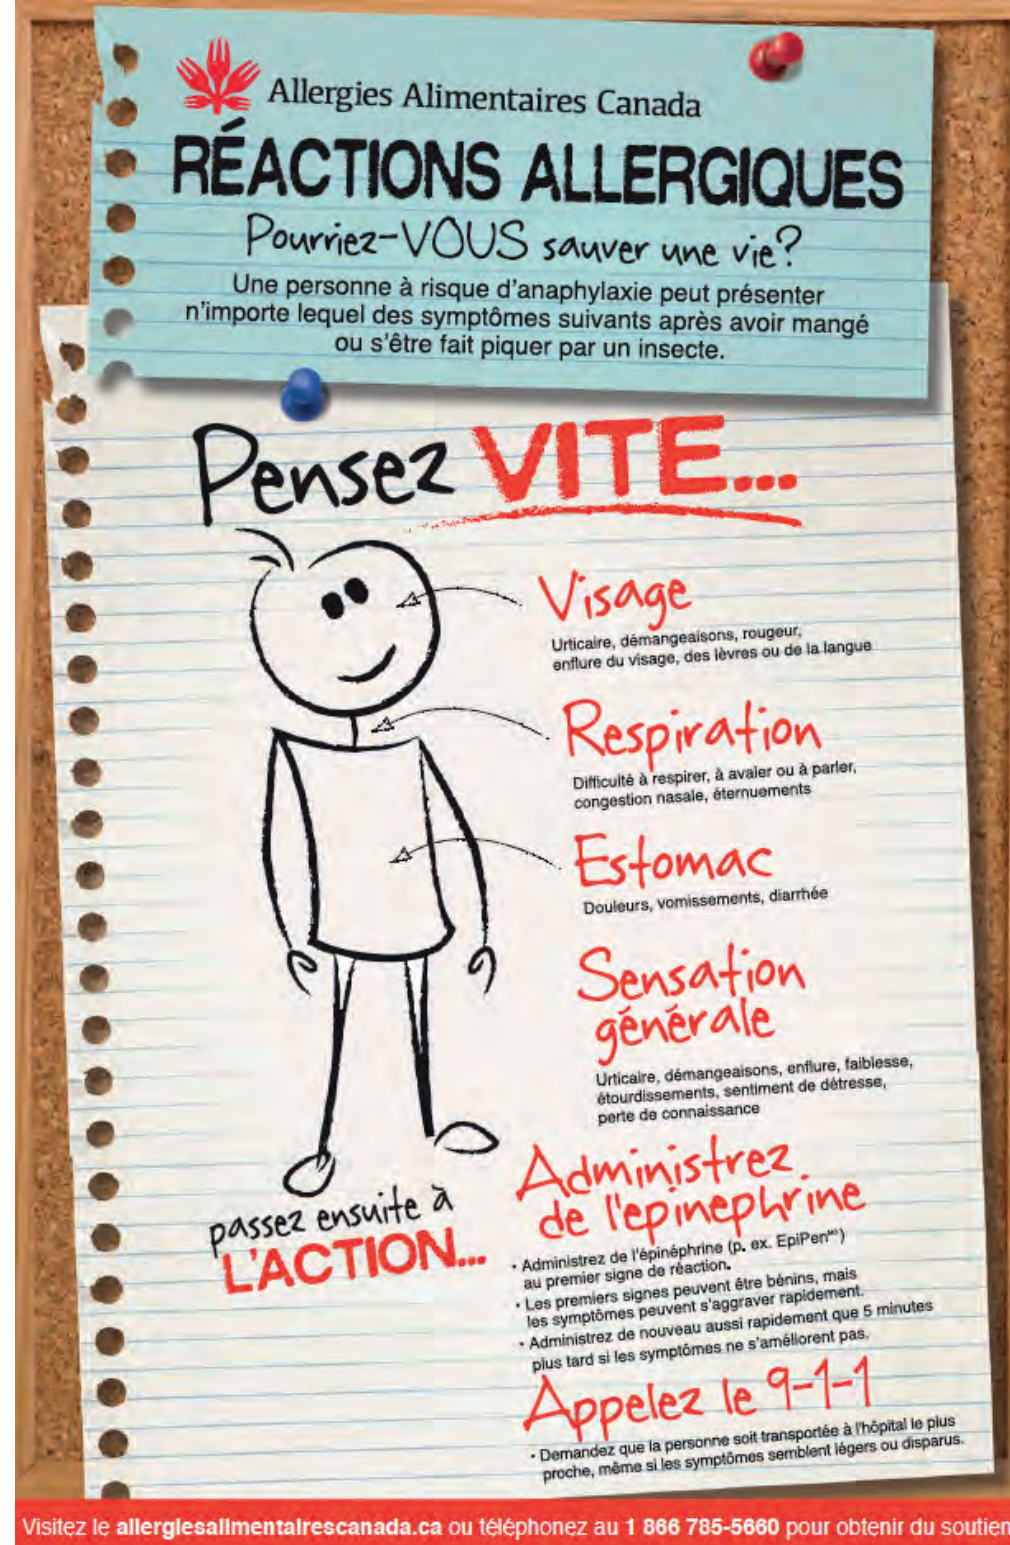 Allergies Alimentaires Canada
RÉACTIONS ALLERGIQUES
Pourriez-VOUS sauver une vie?
Une personne à risque d'anaphylaxie peut présenter
n'importe lequel des symptômes suivants après avoir mangé
ou s'être fait piquer par un insecte.
Pensez VITE...
Visage
Urticaire, démangeaisons, rougeur,
enflure du visage, des lèvres ou de la langue
Respiration
Difficulté à respirer, à avaler ou à parler,
congestion nasale, éternuements
Estomac
Douleurs, vomissements, diarrhée
Sensation
générale
Urticaire, démangeaisons, enflure, faiblesse,
étourdissements, sentiment de détresse,
perte de connaissance
passez ensuite à
L'ACTION...
Administrez
de l'epinephrine
• Administrez de l'épinéphrine (p. ex. EpiPen)
au premier signe de réaction.
• Les premiers signes peuvent être bénins, mais
les symptômes peuvent s'aggraver rapidement.
• Administrez de nouveau aussi rapidement que 5 minutes
plus tard si les symptômes ne s'améliorent pas.
Appelez le 9-1-1
• Demandez que la personne soit transportée à l'hôpital le plus
proche, même si les symptômes semblent légers ou disparus.
Visitez le allergiesalimentairescanada.ca ou téléphonez au 1 866 785-5660 pour obtenir du soutien